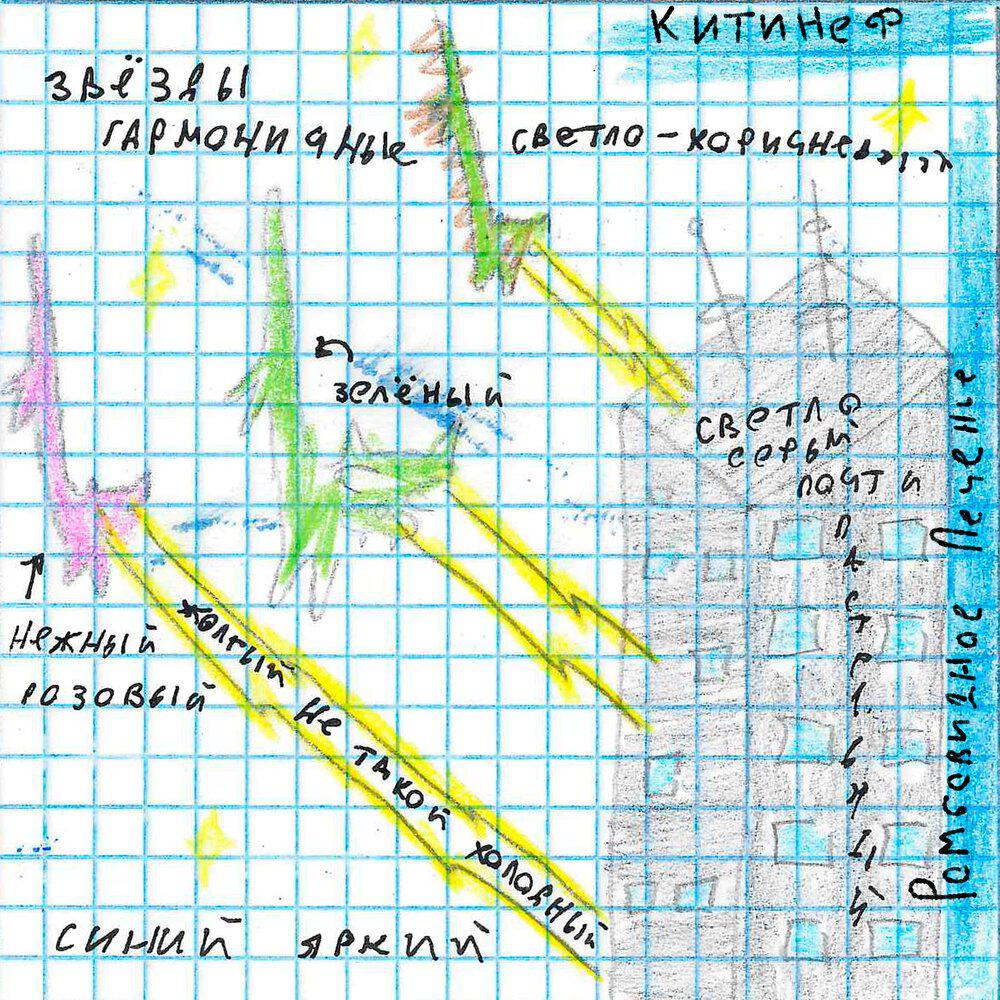 КИТИНЕФ
ЗВЁЗДЫ
ГАРМОНИЧНЫЕ
СВЕТЛО-КОРИЧНЕВ
ЗЕЛЁНЫЙ
СВЕТЛО
СЕРЫЙ
ПОЧТИ
ПАСТЕЛЬНЫЙ
НЕЖНЫЙ
РОЗОВЫЙ
ЖЁЛТЫЙ НЕ ТАКОЙ ХОЛОДНЫЙ
СИНИЙ ЯРКИЙ
Ромбовидное Печенье